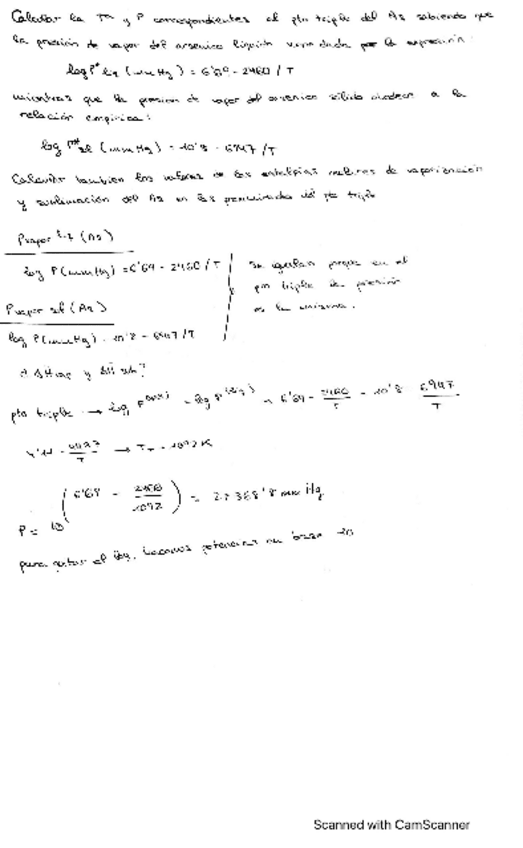 Calcular la Tª y P correspondientes al pto triple del As sabiendo que
la presión de vapor del arsénico líquido viene dada por la expresión:
log P* liq (mmHg) = 6'69 - 2460 / T
mientras que la presion de vapor del arsénico sólido obedece a la
relación empírica:
log P* sol (mmHg) = 10'8 - 6947 / T
Calcular también los valores de las entalpias molares de vaporización
y sublimación del As en las proximidades del pto triple
Pvapor liq (As)
log P(mmHg) = 6'69 - 2460 / T
se igualan porque en el
pto triple la presión
es la misma.
Pvapor sol (As)
log P(mmHg) = 10'8 - 6947 / T
pto triple → log P = log P = 6'69 - 2460 / T = 10'8 - 6947 / T
→ T = 1092 K
P = 10^(6'69 - 2460 / 1092) = mmHg
para quitar el log, hacemos potencias en base 10
Scanned with CamScanner